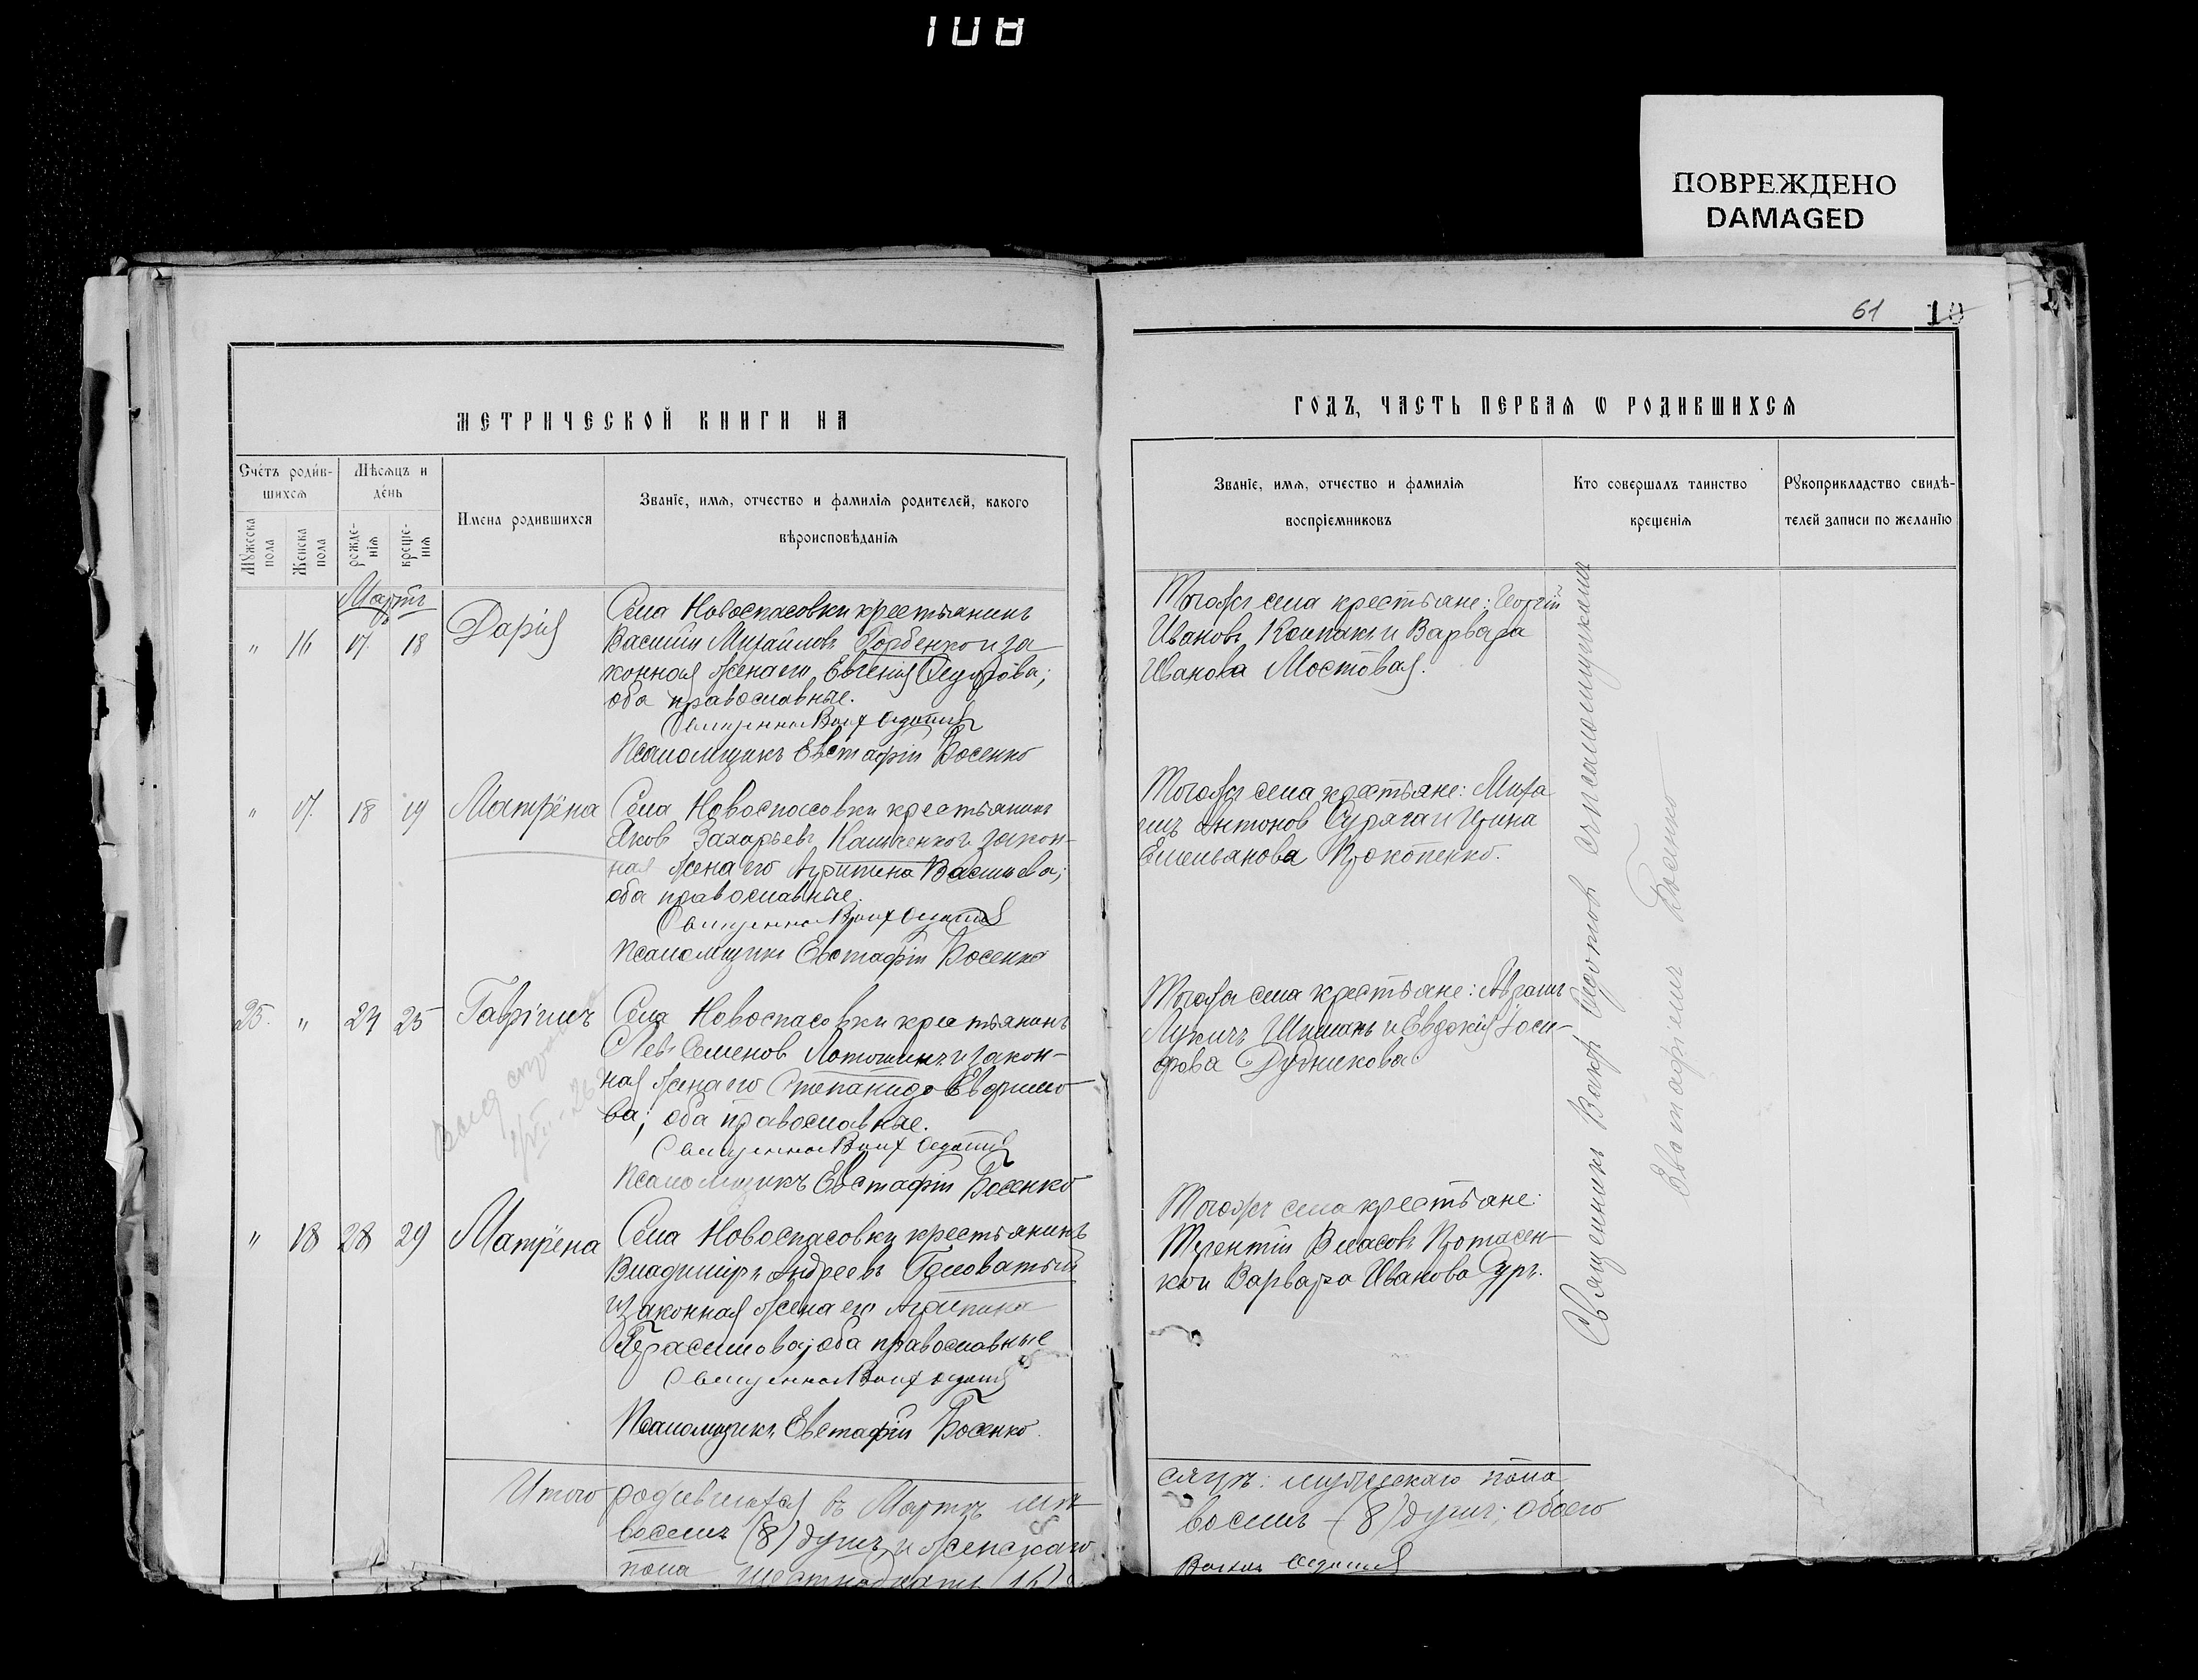 108
ПОВРЕЖДЕНО
DAMAGED
61 10
МЕТРИЧЕСКОЙ КНИГИ НА
ГОДЪ, ЧАСТЬ ПЕРВАЯ Ѡ РОДИВШИХСЯ
Счетъ родив-
шихся
Мужеска пола
Женска пола
Мѣсяцъ и
день
рожде-
нія
креще-
нія
Имена родившихся
Званіе, имя, отчество и фамилія родителей, какого
вѣроисповѣданія
Званіе, имя, отчество и фамилія
воспріемниковъ
Кто совершалъ таинство
крещенія
Рукоприкладство свидѣ-
телей записи по желанію
Мартъ
" 16 17 18 Дарія
Села Новоспасовки крестьянинъ
Василій Михайловъ Горбенко и за
конная жена его Евгенія Федорова;
оба православные.
Псаломщикъ Евстафій Босенко
Тогоже села крестьяне: Георгій
Ивановъ Колпакъ и Варвара
Иванова Мостовая.
" 17 18 19 Матрёна
Села Новоспасовки крестьянинъ
Яковъ Захарьевъ и закон-
ная жена его Васильева;
оба православные.
Псаломщикъ Евстафій Босенко
Тогоже села крестьяне: Миха
илъ Антонов и Ирина
Емельянова Прокопенко.
25. " 24 25 Гавріилъ
Села Новоспасовки крестьянинъ
Левъ Семенов и закон-
ная жена его Степанида Евфимо
ва; оба православные.
Псаломщикъ Евстафій Босенко
Тогоже села крестьяне: Аврамъ
Лукичъ и Евдокія Іоси-
фова Дудникова.
" 18 28 29 Матрёна
Села Новоспасовки крестьянинъ
Владиміръ Андреевъ Головатый
и законная жена его
Герасимова; оба православные
Псаломщикъ Евстафій Босенко.
Тогоже села крестьяне:
Терентій Власовъ Протасен-
ко и Варвара Иванова
Священникъ съ псаломщикомъ
Евстафіемъ Босенко
Итого родившихся въ Мартѣ мѣ-
сяцѣ: мужескаго пола
восемь (8) душъ и женскаго
восемь (8) душъ; обоего
пола шестнадцать (16)